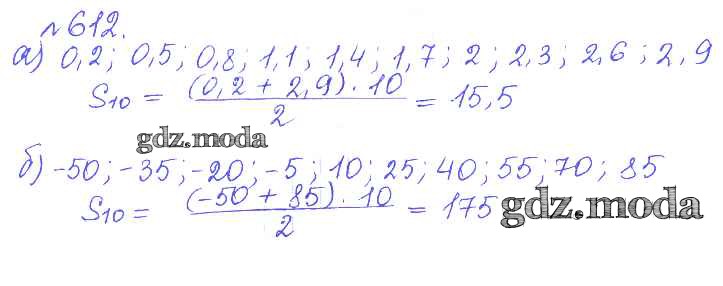 №612.
а) 0,2; 0,5; 0,8; 1,1; 1,4; 1,7; 2; 2,3; 2,6; 2,9
S10 = (0,2 + 2,9) · 10 / 2 = 15,5
gdz.moda
б) -50; -35; -20; -5; 10; 25; 40; 55; 70; 85
S10 = (-50 + 85) · 10 / 2 = 175
gdz.moda